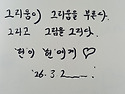 그리움이 그리움을 부른다.
그리고 그림을 그리다.
현이 현에게 ♡
'26. 3. 2